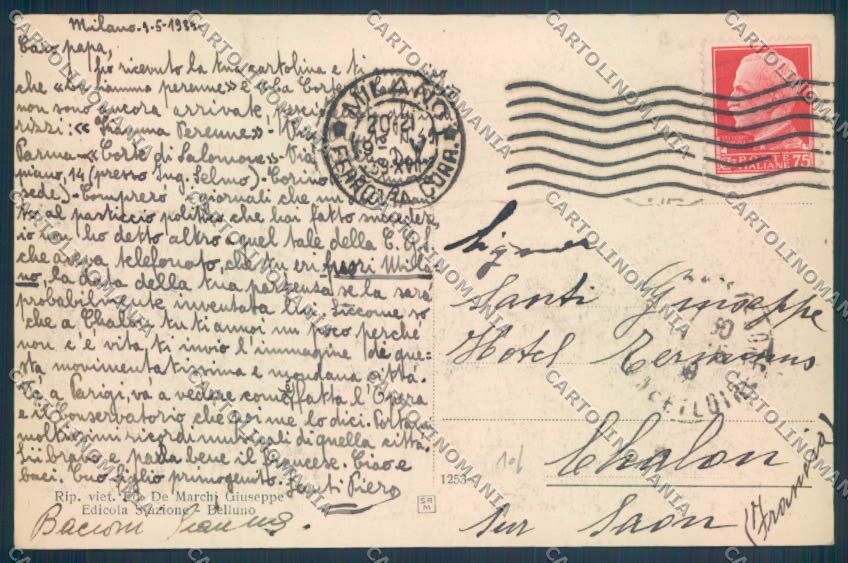 Milano - 9-5-1939
Caro papà,
ho ricevuto la tua cartolina e ti
che "La Fiamma perenne" e "La Corte
non sono ancora arrivate, perciò
rizzi: "Fiamma Perenne" - Via
Parma - "Corte di Salomone" - Via
piano, 14 (presso Ing. Selmo) - Torino
sede) - Comprerò i giornali che mi
to al pasticcio politico che hai fatto succedere,
io non ho detto altro a quel tale della
che aveva telefonato, che tu eri fuori Mila-
no, la data della tua partenza se la sarà
probabilmente inventata lui. Siccome so
che a Chalon tu ti annoi un poco perché
non c'è vita ti invio l'immagine di que-
sta movimentatissima e mondana città.
Se a Parigi, va a vedere com'è fatta l'Opera
e il Conservatorio che poi me lo dici. Porta
moltissimi ricordi musicali di quella città.
Sii bravo e parla bene il francese. Ciao e
baci. Tuo figlio primogenito. Santi Piero
Rip. viet. Ed. De Marchi Giuseppe
Edicola Stazione - Belluno
Bacioni
MILANO
FERROVIA CORR.
POSTE
ITALIANE
75
Signor
Santi Giuseppe
Hotel Terminus
Chalon
Sur Saon
(Francia)
1253
SR
M
CARTOLINOMANIA